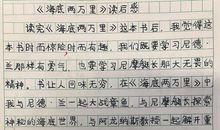 《海底两万里》读后感
读完《海底两万里》这本书后，我觉得这
本书时而惊险时而有趣，我们既要学习尼德·
兰那样有勇气，也要学习尼摩艇长那大无畏的
精神，书让人回味无穷，在《海底两万里》中
我与尼德·兰一起大战鲨鱼，与尼摩艇长探索
神秘的海底世界，与阿龙纳斯教授一起解开重